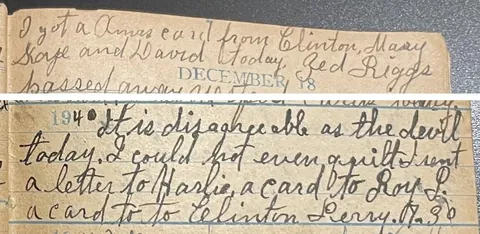 I got a Xmas card from Clinton, Mary
Kaye and David today. Zed Riggs
DECEMBER 18
passed away
1940 It is disagreeable as the devil
today. I could not even quilt I sent
a letter to Harlie, a card to Roy L.
a card to to Clinton Perry.